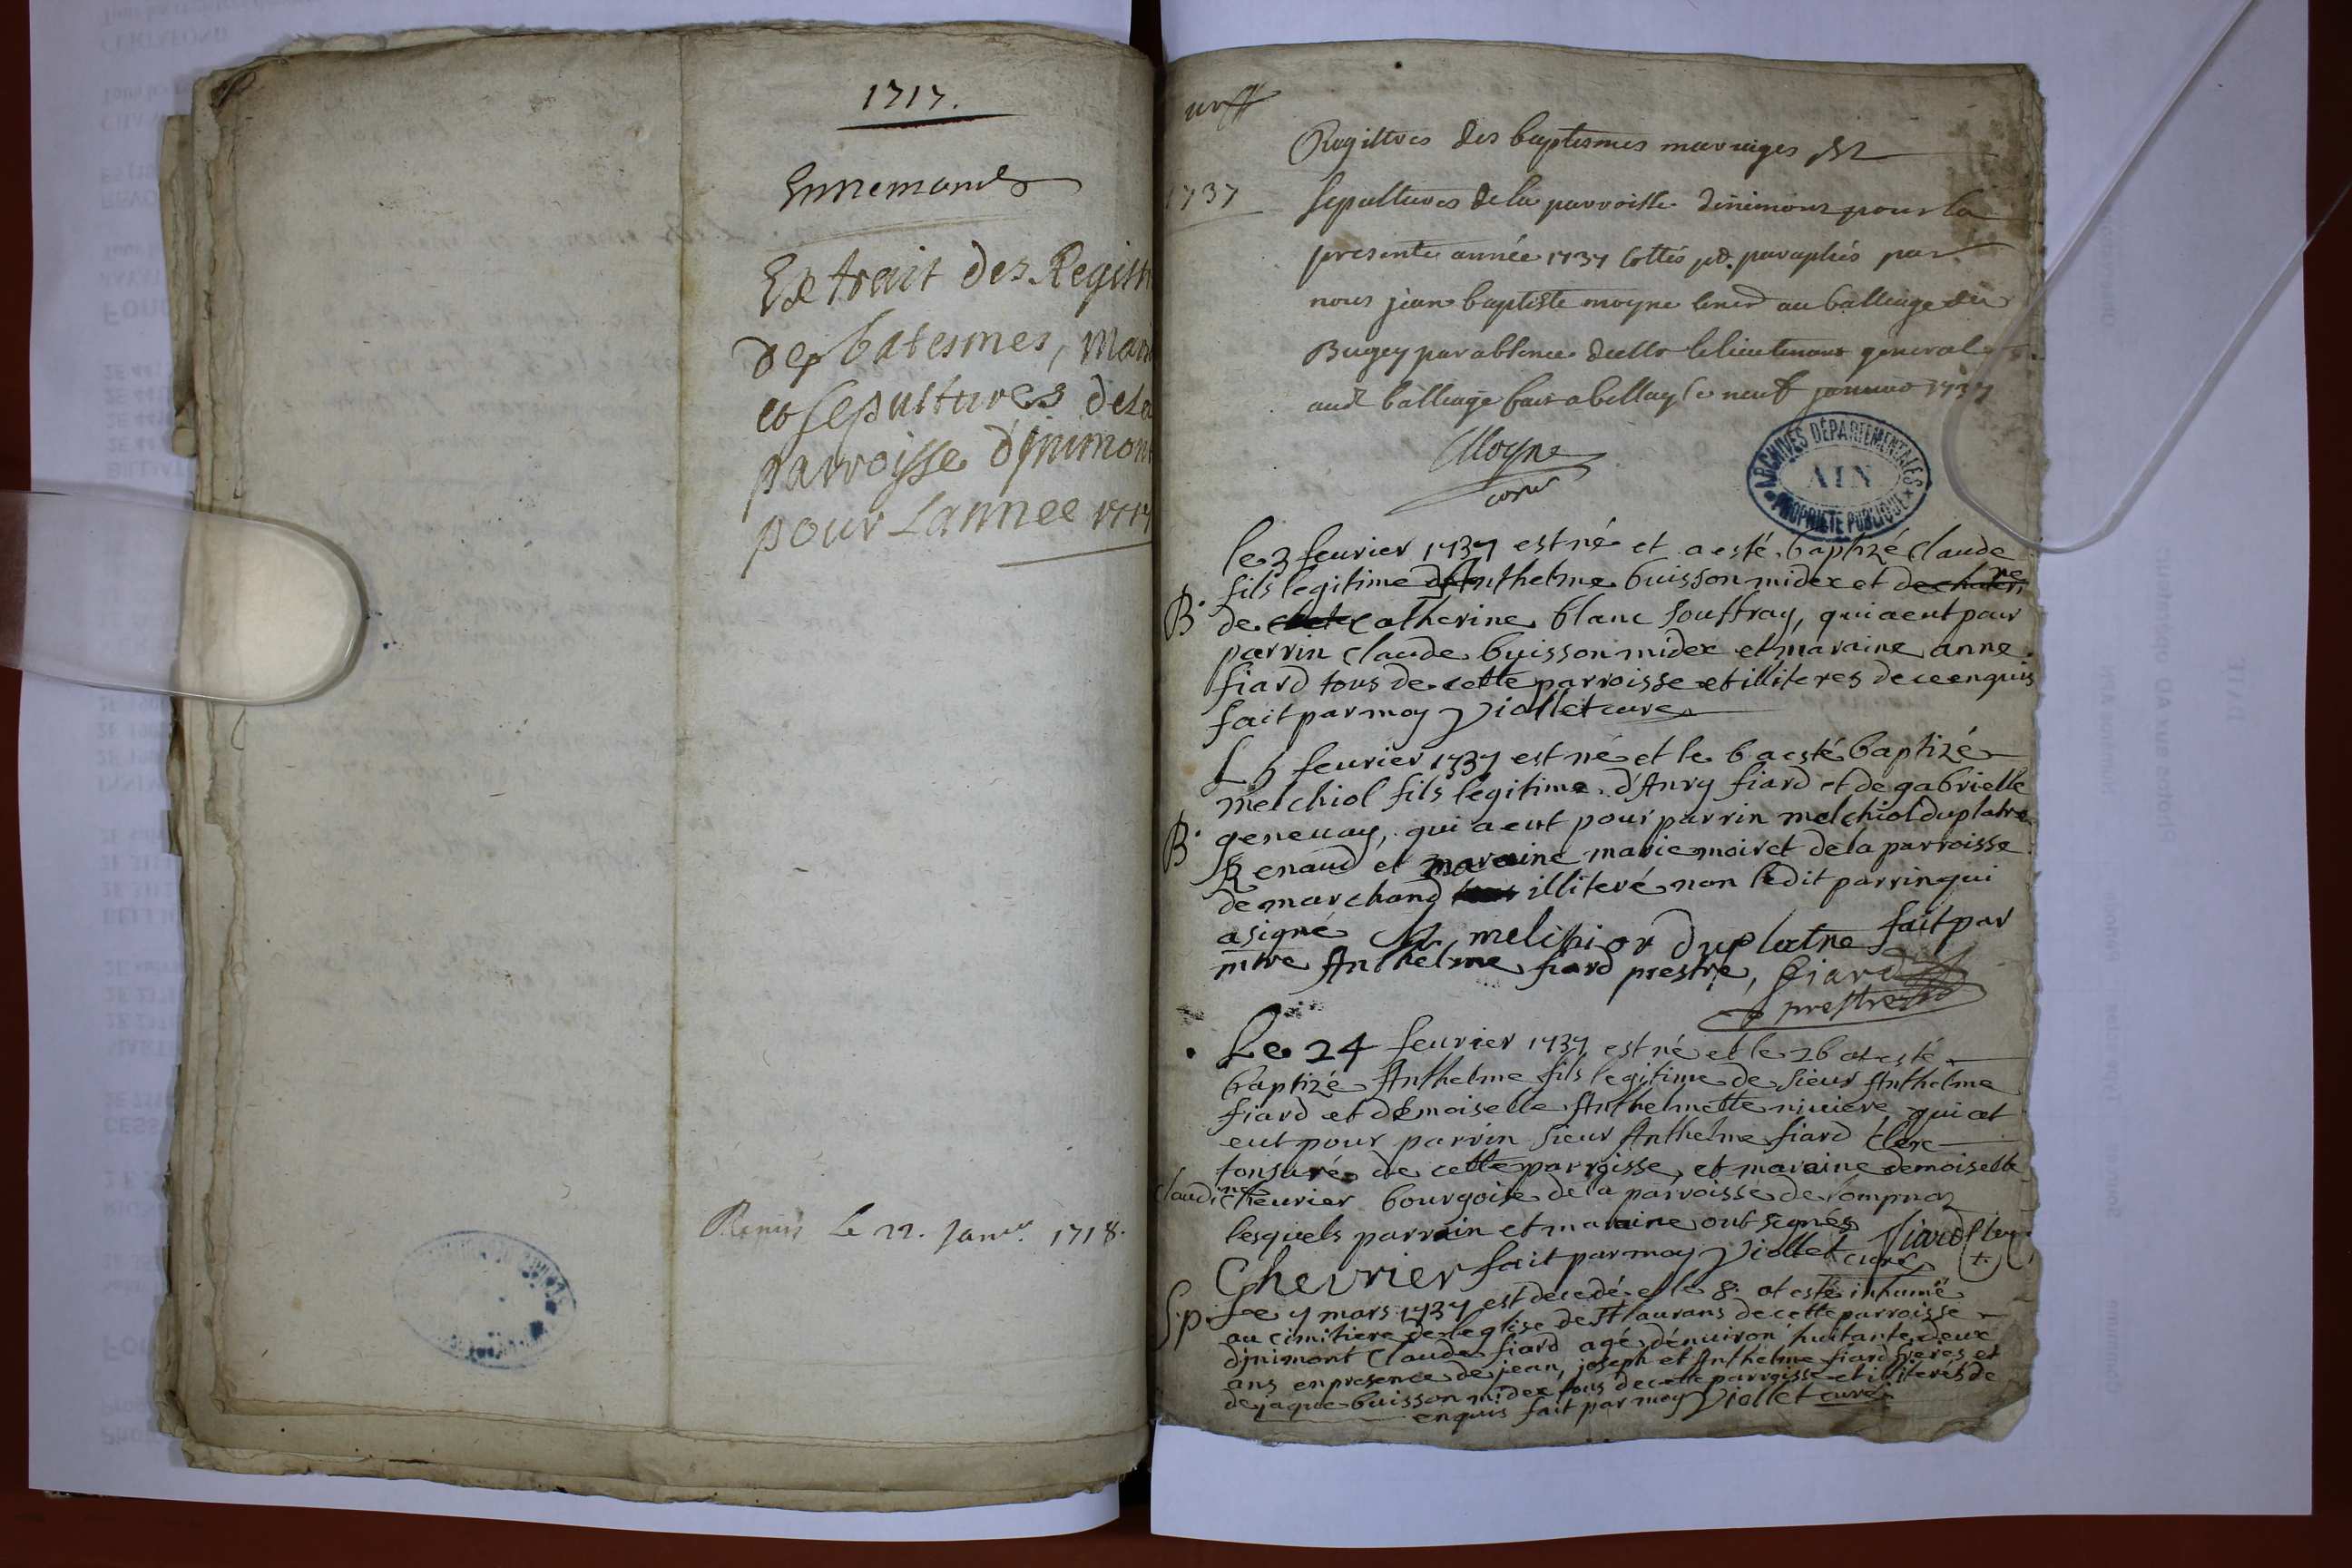 1717.
Ennemond
Extrait des Regist
des batesmes, mari
et sepultures de la
parroisse d'Jnimon
pour Lannee 1717
Remis Le 22. Janv.r 1718.
1737
Registres des baptesmes mariages et
sepultures de la parroisse dinimont pour la
presente année 1737 cottés et paraphés par
nous jean baptiste moyne au balliage du
Bugey par absence le lieutenant general
aud balliage fait a bellay le neuf janvier 1737
Moyne
ARCHIVES DÉPARTEMENTALES
AIN
PROPRIÉTÉ PUBLIQUE
le 3 feurier 1737 est né et a esté baptizé claude
fils legitime d'Anthelme buisson midex et
B. de catherine blanc souffray, qui a eut pour
parrin claude buisson midex et maraine anne
fiard tous de cette parroisse et illiteres de ce enquis
fait par moy Viollet cure
L 5 feurier 1737 est né et le 6 a esté baptizé
melchiol fils legitime d'Anry fiard et de gabrielle
B. geneuay, qui a eut pour parrin melchiol duplatre
Renaud et maraine marie moiret de la parroisse
de marchand illiteré non ledit parrin qui
a signé melchior duplatre fait par
mre Anthelme fiard prestre, fiard
prestre
Le 24 feurier 1737 est né et le 26 at esté
baptizé Anthelme fils legitime de sieur Anthelme
fiard et demoiselle Anthelmette niuiere qui at
eut pour parrin sieur Anthelme fiard clerc
tonsuré de cette parroisse, et maraine demoiselle
claudine cheurier bourgoise de la parroisse de lompnaz
lesquels parrain et maraine ont signés fiard clerc
Chevrier fait par moy Viollet curé
S.p. Le 7 mars 1737 est decedé et le 8. at esté inhumé
au cimitiere de leglise de St laurans de cette parroisse
djnimont Claude fiard agé d'enuiron huitante deux
ans en presence de jean, joseph et Anthelme fiard freres et
de jaque buisson midex tous de cette parroisse et illiterés de
enquis fait par moy Viollet curé